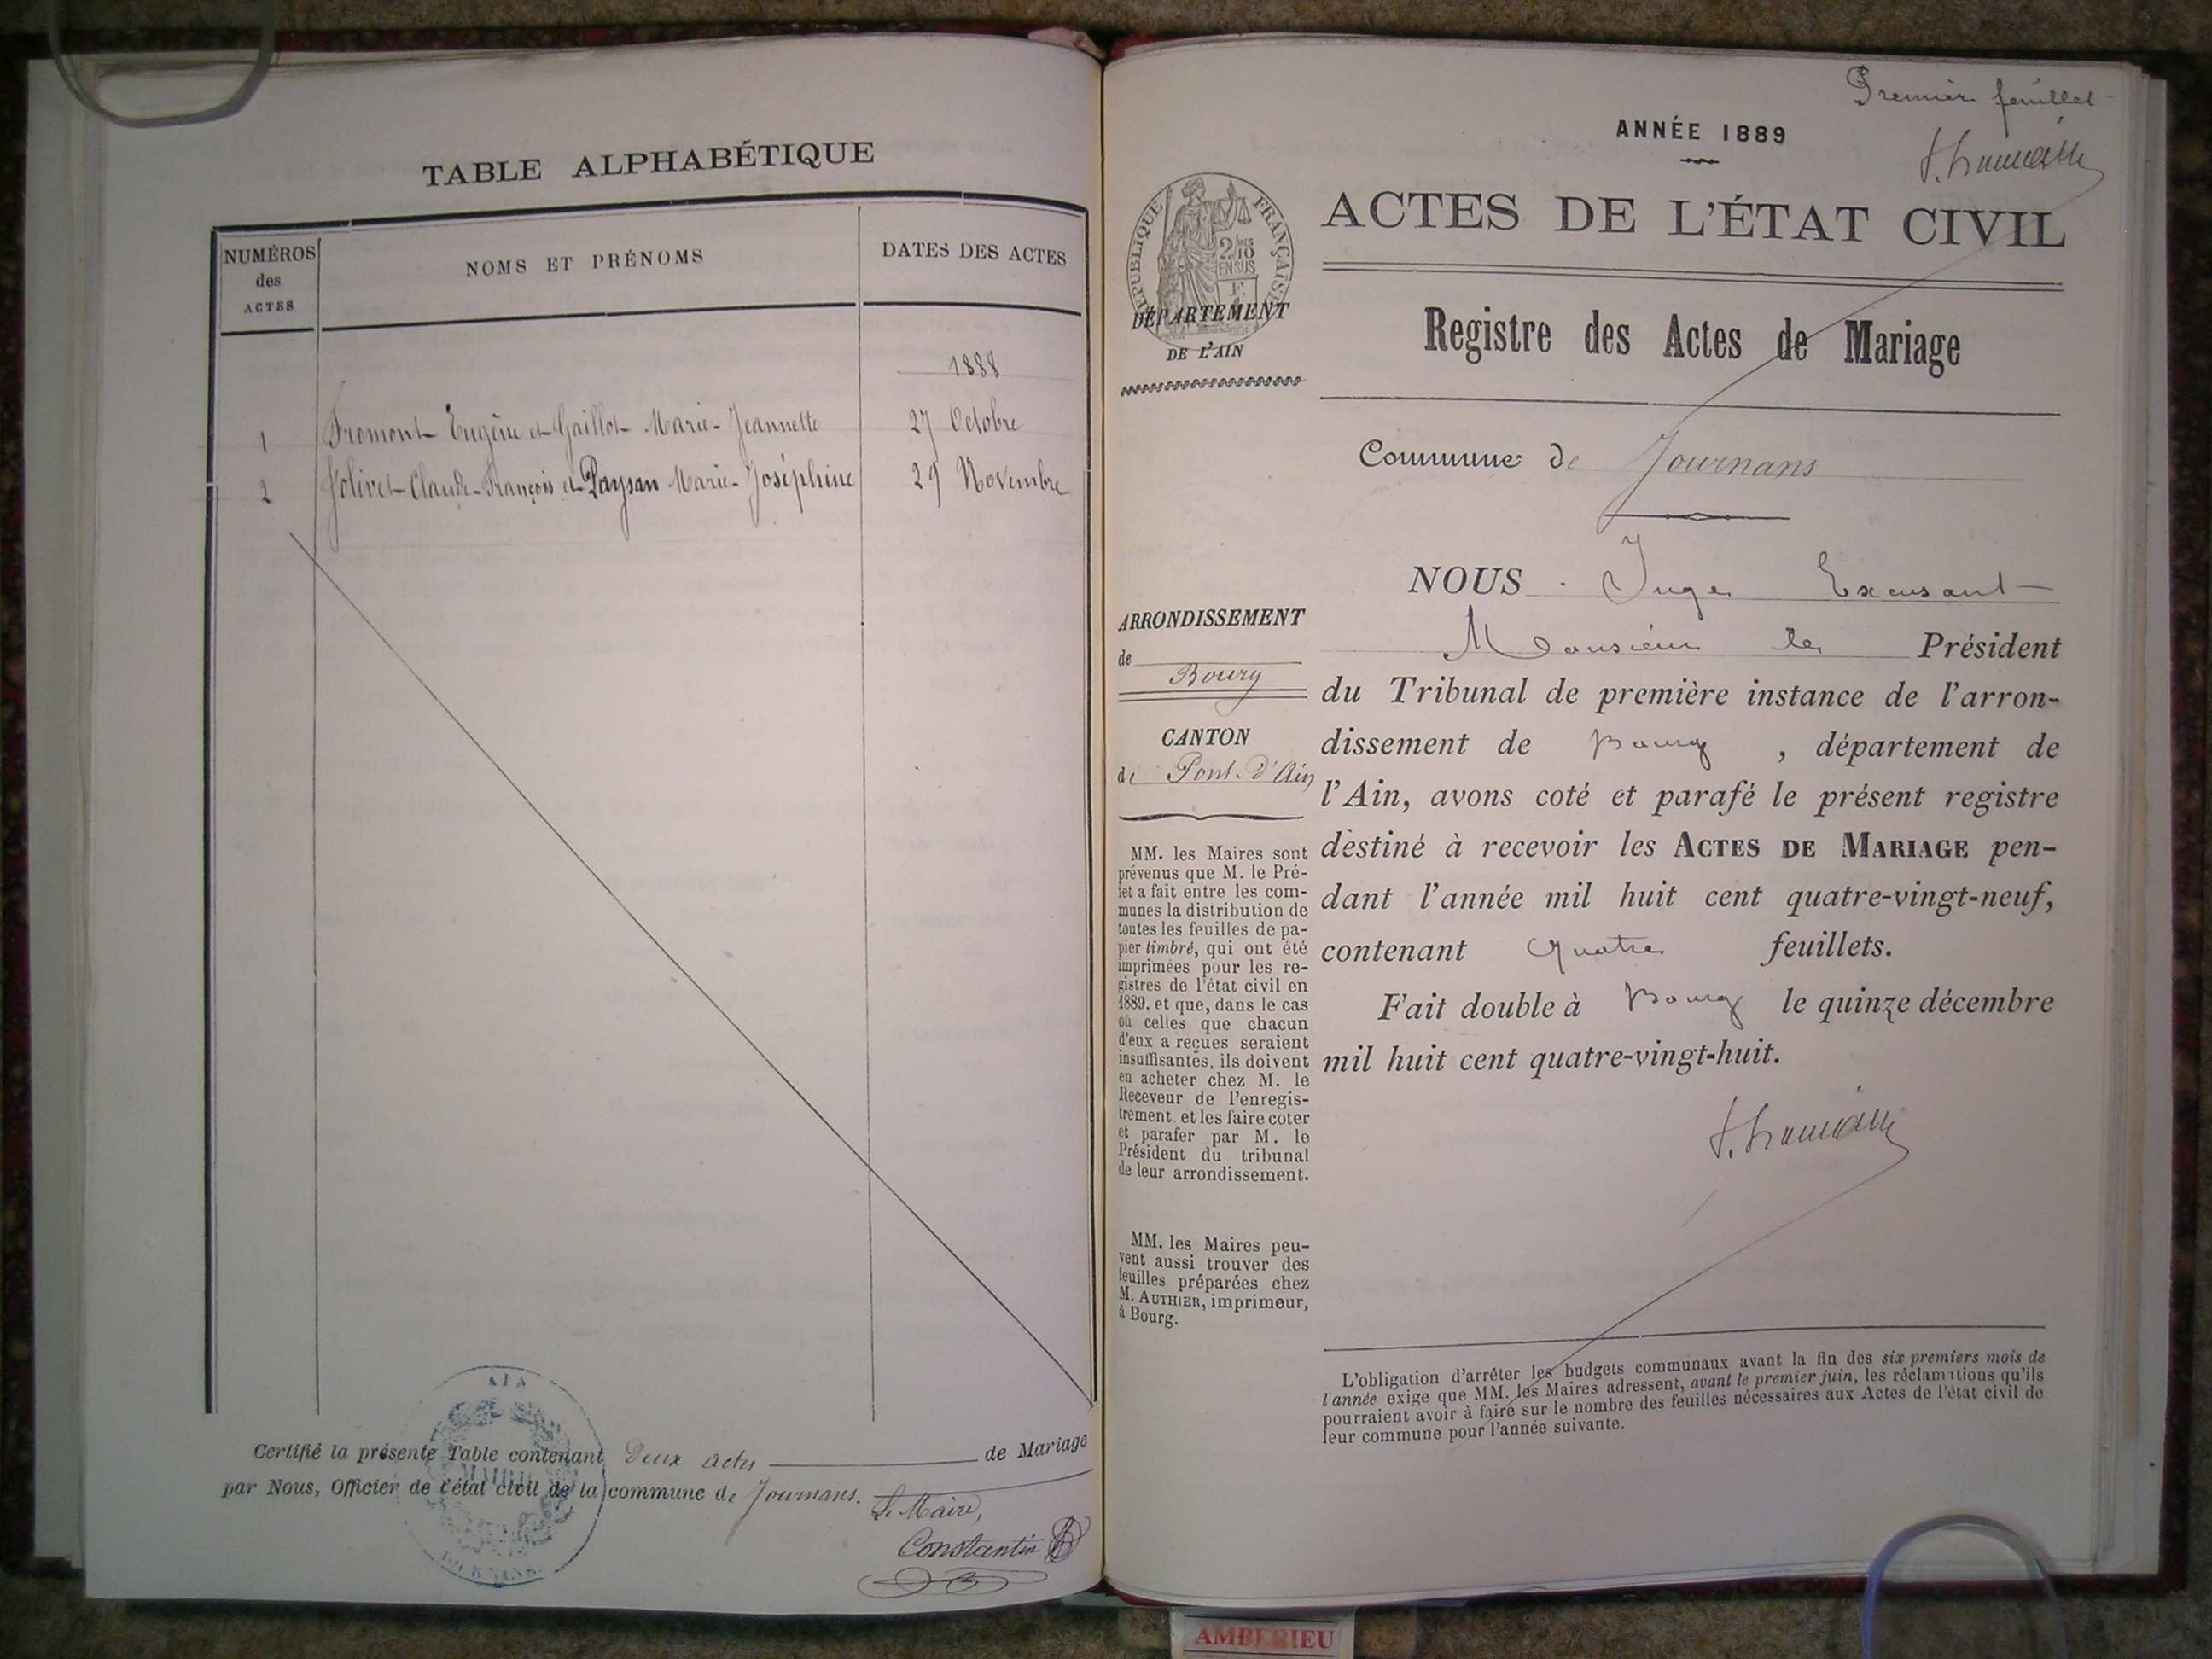 TABLE ALPHABÉTIQUE
NUMÉROS
des
ACTES
NOMS ET PRÉNOMS
DATES DES ACTES
1888
1 Fromont Eugène et Gaillot Marie-Jeannette 27 Octobre
2 Jolivet Claude-François et Paysan Marie-Joséphine 29 Novembre
AIN
MAIRIE
JOURNANS
Certifié la présente Table contenant Deux actes de Mariage
par Nous, Officier de l'état civil de la commune de Journans.
Le Maire,
Constantin
Premier feuillet
ANNÉE 1889
ACTES DE L'ÉTAT CIVIL
RÉPUBLIQUE FRANÇAISE
2/10
EN SUS
DÉPARTEMENT
DE L'AIN
Registre des Actes de Mariage
Commune de Journans
ARRONDISSEMENT
de Bourg
CANTON
de Pont-d'Ain
MM. les Maires sont
prévenus que M. le Pré-
fet a fait entre les com-
munes la distribution de
toutes les feuilles de pa-
pier timbré, qui ont été
imprimées pour les re-
gistres de l'état civil en
1889, et que, dans le cas
où celles que chacun
d'eux a reçues seraient
insuffisantes, ils doivent
en acheter chez M. le
Receveur de l'enregis-
trement et les faire coter
et parafer par M. le
Président du tribunal
de leur arrondissement.
MM. les Maires peu-
vent aussi trouver des
feuilles préparées chez
M. AUTHIER, imprimeur,
à Bourg.
NOUS Juge Excusant
Monsieur le Président
du Tribunal de première instance de l'arron-
dissement de Bourg, département de
l'Ain, avons coté et parafé le présent registre
destiné à recevoir les ACTES DE MARIAGE pen-
dant l'année mil huit cent quatre-vingt-neuf,
contenant Quatre feuillets.
Fait double à Bourg le quinze décembre
mil huit cent quatre-vingt-huit.
L'obligation d'arrêter les budgets communaux avant la fin des six premiers mois de
l'année exige que MM. les Maires adressent, avant le premier juin, les réclamations qu'ils
pourraient avoir à faire sur le nombre des feuilles nécessaires aux Actes de l'état civil de
leur commune pour l'année suivante.
AMBERIEU